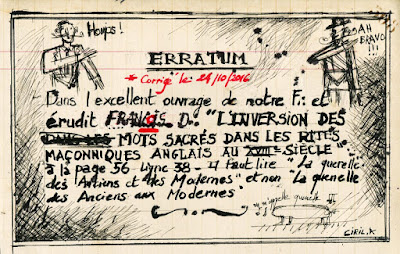 Houps!
AH
BRAVO
!!!
ERRATUM
* Corrigé le: 21/10/2016
Dans l'excellent ouvrage de notre F∴ et
érudit FRANCIS. D∴ "L'INVERSION DES
DANS LES MOTS SACRÉS DANS LES RITES
MAÇONNIQUES ANGLAIS AU XVIIIe SIÈCLE
à la page 56 ligne 38 - il faut lire "La querelle
des Anciens et des Modernes" et non "La quenelle
des Anciens aux Modernes".
CIRIL.K